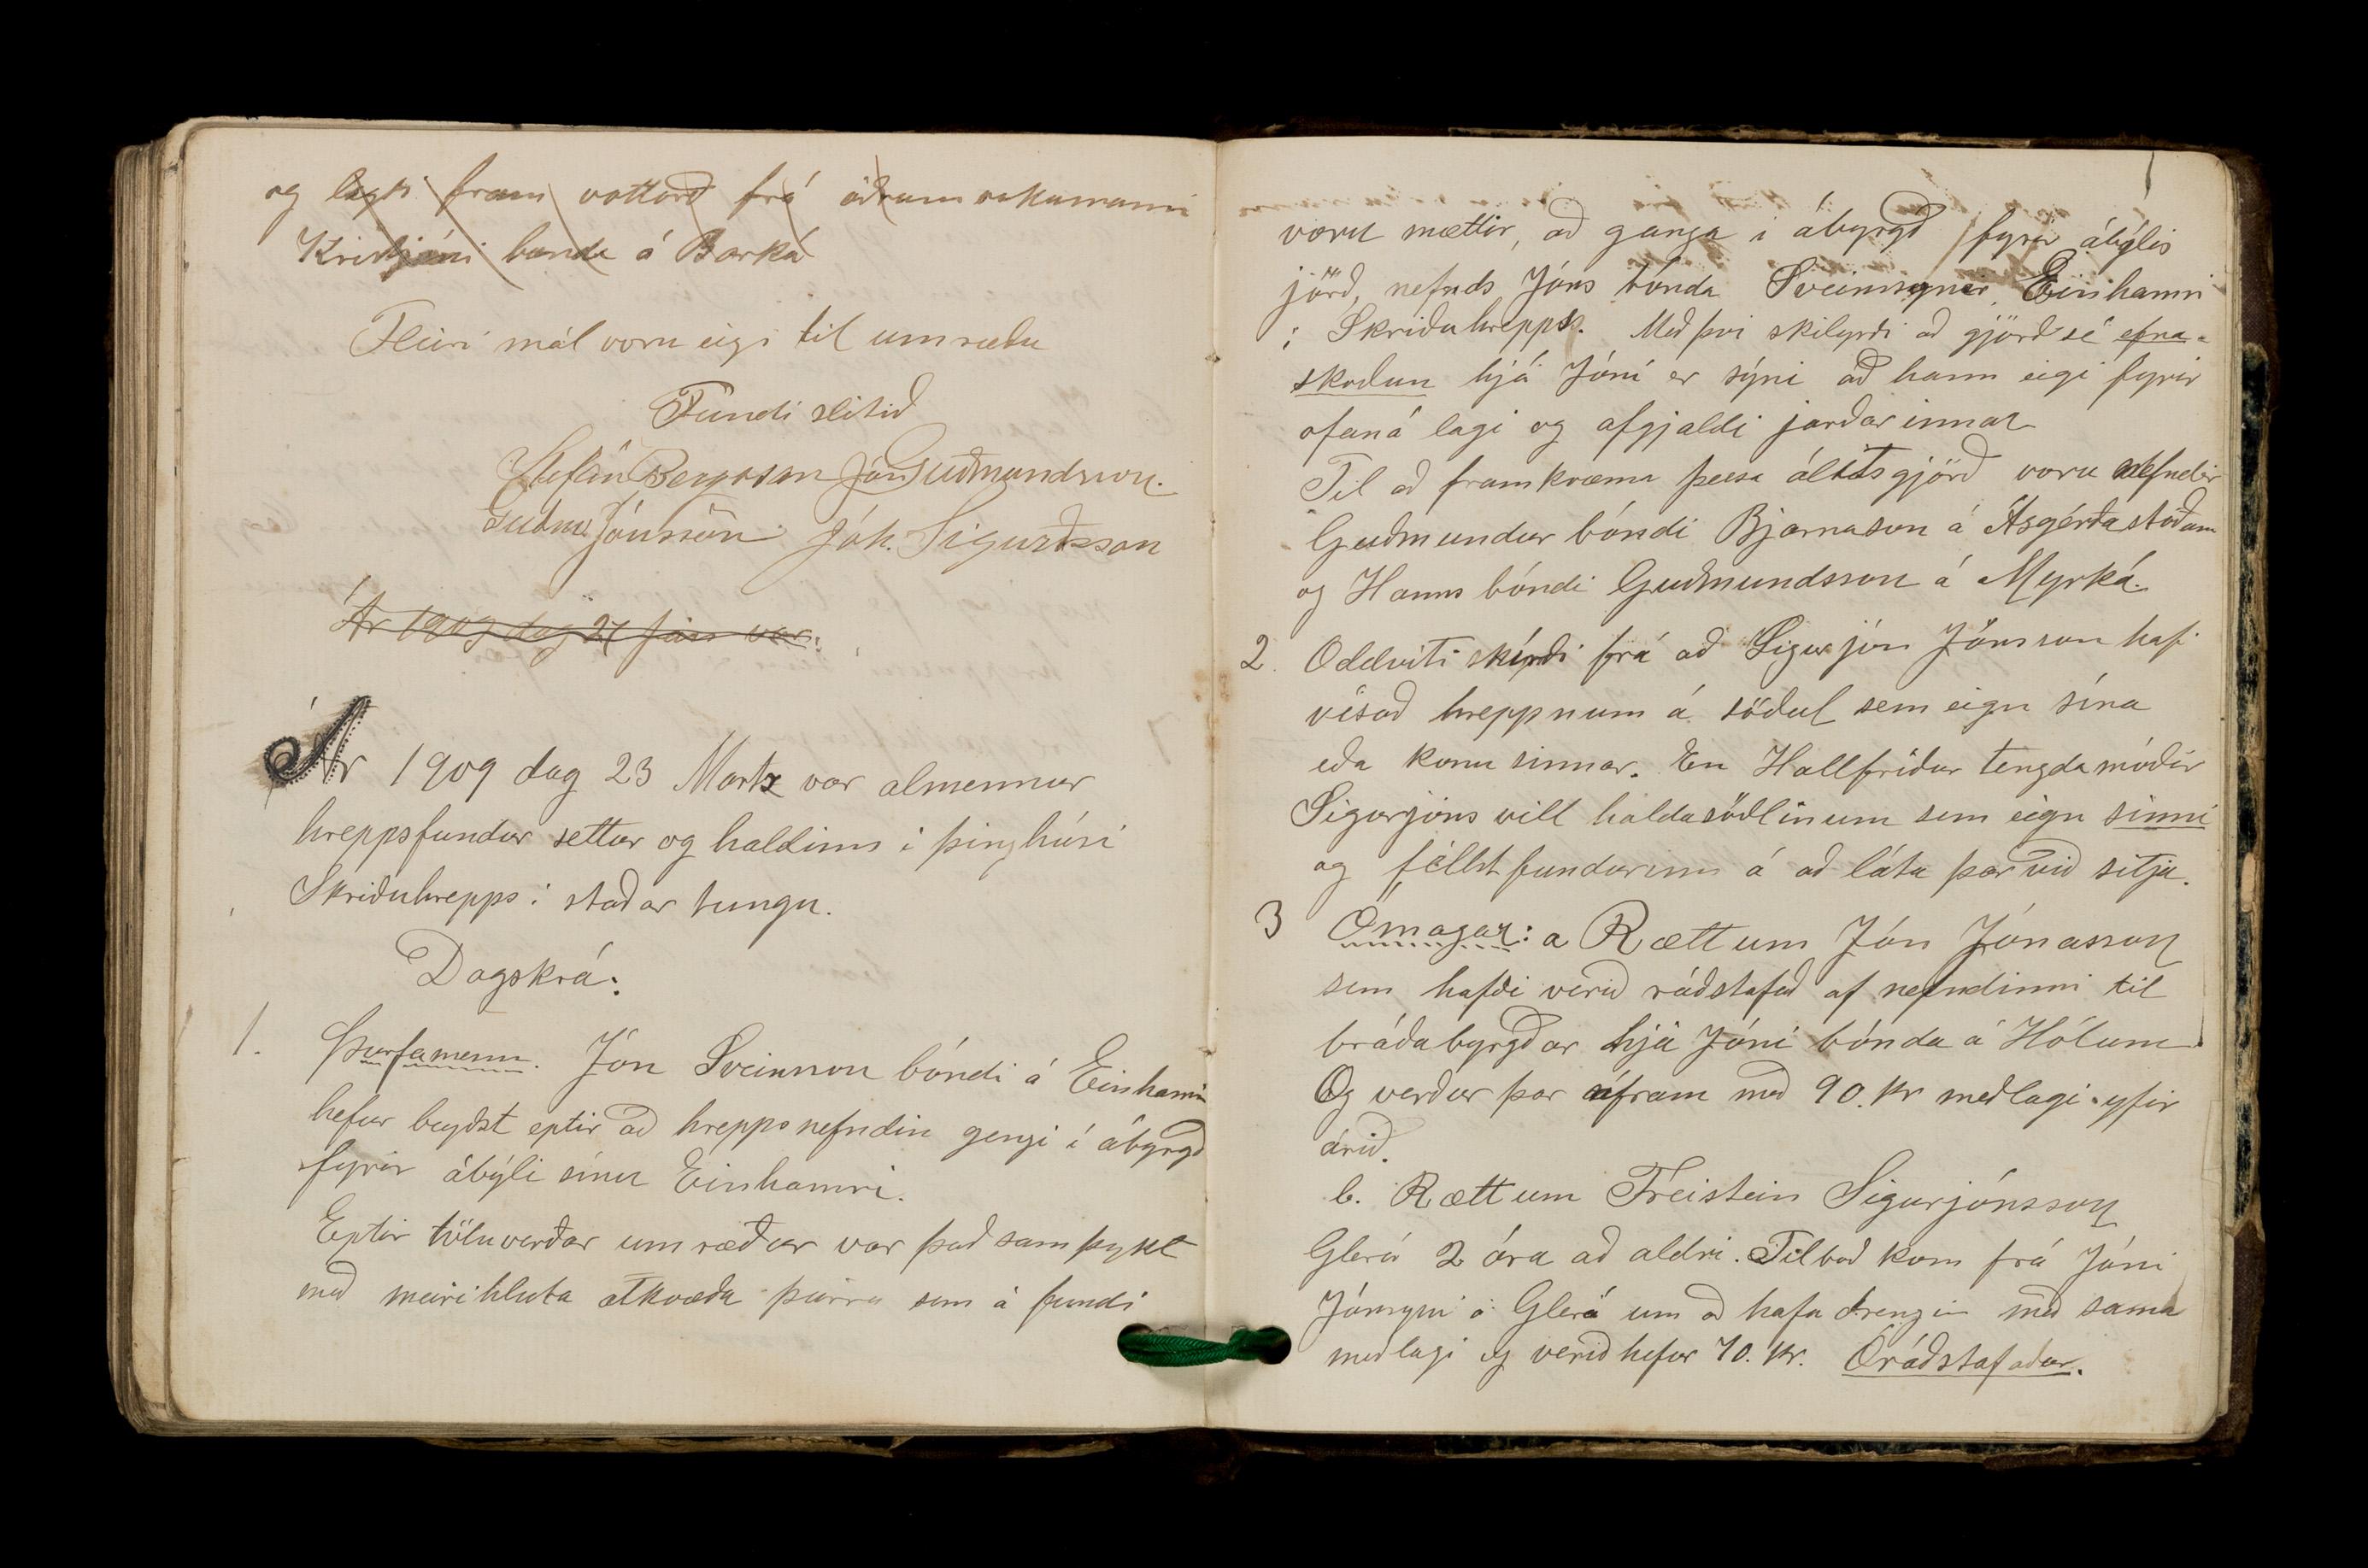 og lagði fram vottorð frá öðrum
Kristjáni bonda á Barká
Fleiri mál voru eigi til umræðu
Fundi slitið
Stefán Bergsson Jón Guðmundsson.
Guðm. Jónsson Jóh. Sigurðsson
Ár 1909 dag 21 var.
Ár 1909 dag 23 Marts var almennur
hreppsfundur settur og haldinn i þinghúsi
Skriðuhrepps i staðar tungu.
Dagskrá:
1. Þurfamenn. Jón Sveinsson bóndi á Einhamri
hefur beyðst eptir að hreppsnefndin gengi í ábyrgð
fyrir ábýli sínu Einhamri.
Eptir töluverðar umræður var það samþykt
með meirihluta atkvæða þeirra sem á fundi
voru mættir, að ganga i ábyrgð fyrir ábýlis
jörð, nefnds Jóns bónda Sveinssynar Einhamri
i Skriðuhrepps. Með þvi skilyrði að gjörð sé efna-
skoðun hjá Jóni er sýni að hann eigi fyrir
ofaná lagi og afgjaldi jarðarinnar
Til að framkvæma þessa álitsgjörð voru nefndir
Guðmundur bóndi Bjarnason á Ásgérðastöðum
og Hanns bóndi Guðmundsson á Myrká.
2. Oddviti skírði frá að Sigurjón Jónsson hafi
vísað hreppnum á söðul sem eign sína
eða konu sinnar. En Hallfríður tengdamóðir
Sigurjóns vill halda söðlinum sem eign sinni
og féllst fundurinn á að láta þar við sitja.
3 Ómagar: a Rætt um Jón Jónasson
sem hafði verið ráðstafað af nefndinni til
bráðabyrgðar hjá Jóni bónda á Hólum
Og verður þar áfram með 90. kr meðlagi yfir
árið.
b. Rætt um Freistein Sigurjónsson
Glerá 2 ára að aldri. Tilboð kom frá Jóni
Jónsyni á Glerá um að hafa drengin með sama
meðlagi og verið hefur 70. kr. Óráðstafaður.